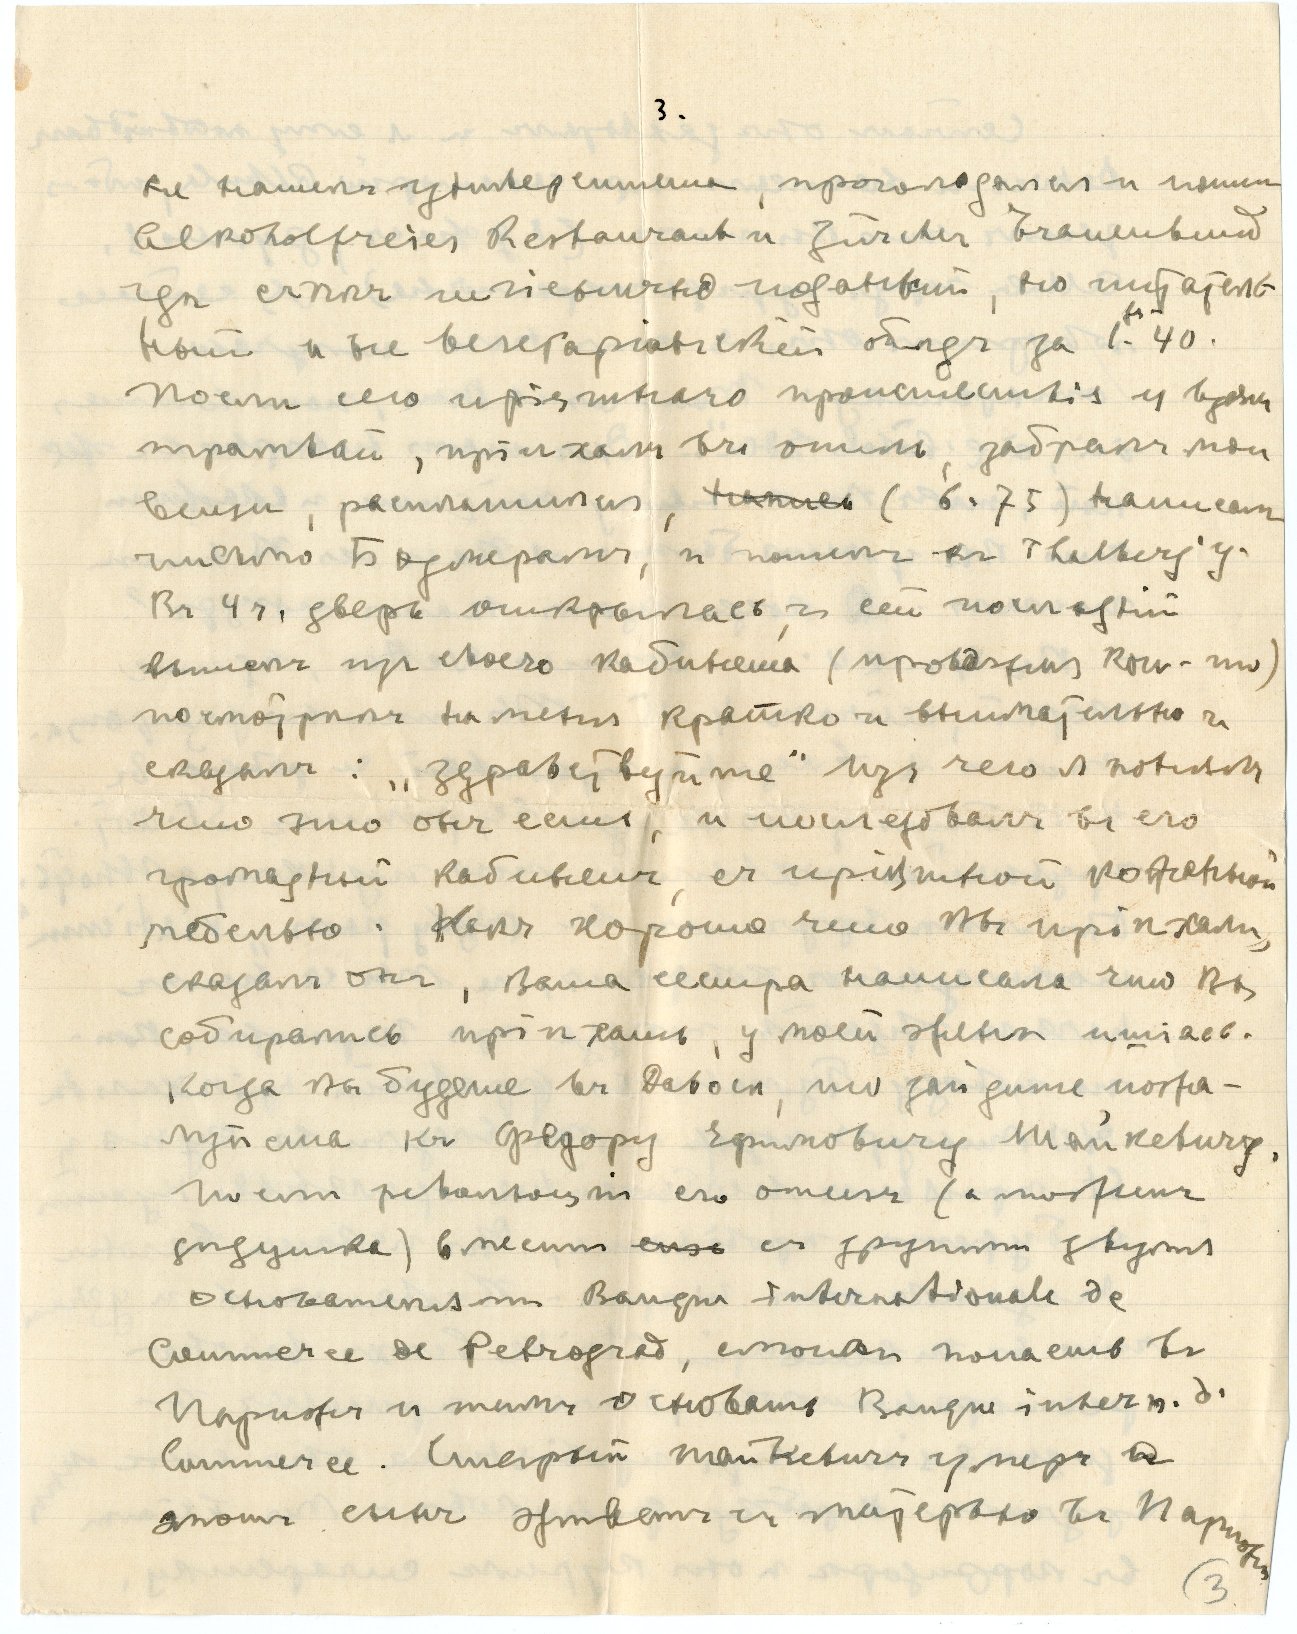 3.
не нашелъ университета, проголодался и нашелъ
Alkoholfreies Restaurant и Zürcher Frauenbund
гдѣ съѣлъ поданный, но питатель-
ный и не вегетаріанскій обѣдъ за 1 fr - 40.
Послѣ сего пріятнаго происшествія я взялъ
трамвай, пріѣхалъ въ отель, забралъ мои
вещи, расплатился, (6.75) написалъ
письмо Бодмерамъ, и пошелъ къ Thalberg'у.
Въ 4 ч. дверь открылась, и сей послѣдній
вышелъ изъ своего кабинета (провожая кого-то)
посмотрѣлъ на меня кратко и внимательно и
сказалъ: „здравствуйте" изъ чего я понялъ
что это онъ есть, и послѣдовалъ въ его
громадный кабинетъ, съ пріятной кожаной
мебелью. Какъ хорошо что Вы пріѣхали,
сказалъ онъ, Ваша сестра написала что Вы
собирались пріѣхать, у моей жены
Когда Вы будете въ Давосѣ, то зайдите пожа-
луйста къ Федору Ефимовичу Шайкевичу.
Послѣ революціи его отецъ (а тоже
дѣдушка) вмѣстѣ съ другими двумя
основателями Banque internationale de
Commerce de Petrograd, смогли попасть въ
Парижъ и тамъ основать Banque intern. d.
Commerce. Старый Шайкевичъ умеръ и
этотъ сынъ живетъ съ матерью въ Парижѣ
(3